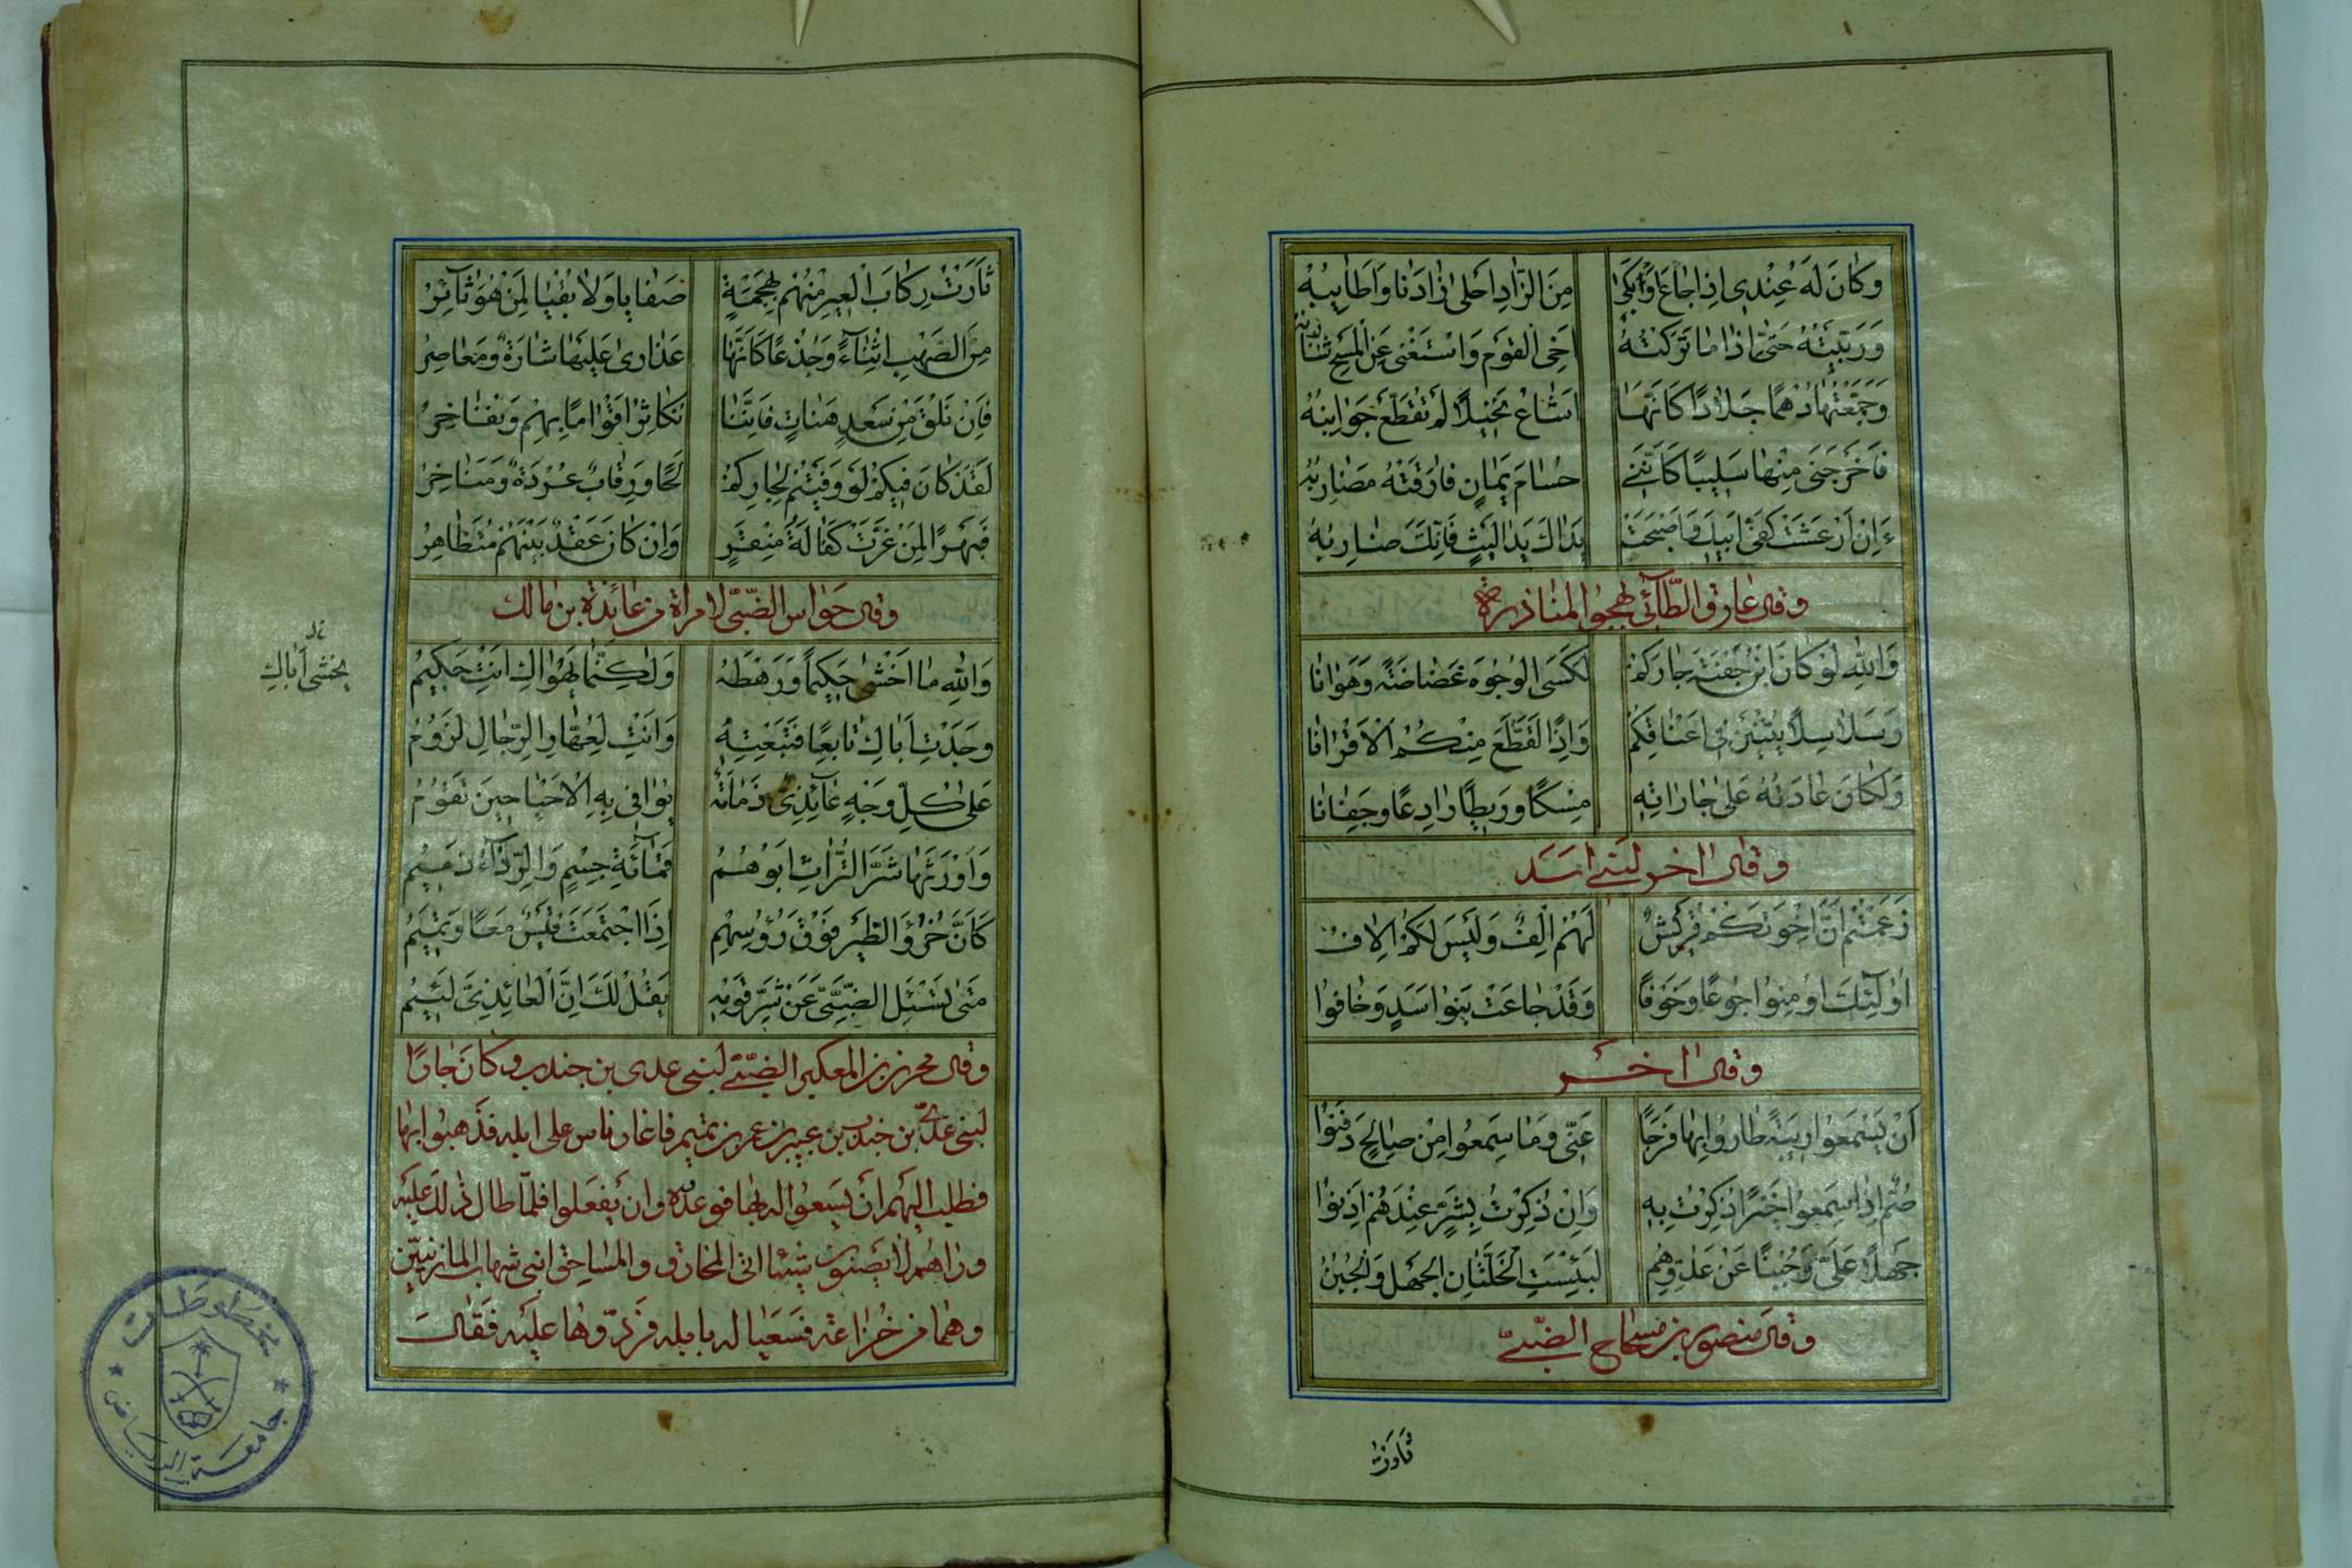 وَكَانَ لَهُ عِنْدِى اِذَا جَاعَ اَوْ بَكَىٰ مِنَ الزَّادِ اَحْلىٰ زَادِنَا وَاَطَايِبُهْ
وَرَبَّيْتُهُ حَتّىٰ اِذَا مَا تَرَكْتُهُ اَخِى القَوْمِ وَاسْتَغْنىٰ عَنِ المَسْحِ شَارِبُهْ
وَجَمَّعْتُهَا دُهْمًا جِلَادًا كَاَنَّهَا اَشَاءُ نَخِيلٍ لَمْ تُقَطَّعْ جَوَانِبُهْ
فَاَخْرَجَنى مِنْهَا سَلِيبًا كَاَنَّنِى حُسَامُ يَمَانٍ فَارَقَتْهُ مَضَارِبُهْ
ءَاِنْ اُرْعِشَتْ كَفَّىْ اَبِيكَ وَاَصْبَحَتْ يَدَاكَ يَدَا لَيْثٍ فَاِنَّكَ ضَارِبُهْ
وقال عارق الطَّائى يهجوا المناذرة
وَاللهِ لَوْ كَانَ ابْنُ جَفْنَةَ جَارَكُمْ لَكَسَى الوُجُوهَ غَضَاضَةً وَهَوَانَا
وَسَلَاسِلًا يُثْنَيْنَ فِى اَعْنَاقِكُمْ وَاِذًا لَقَطَّعَ مِنْكُمُ الاَقْرَانَا
وَلَكَانَ عَادَتُهُ عَلىٰ جَارَاتِهِ مِسْكًا وَرَيْطًا رَادِعًا وَجِفَانَا
وقال اخر لبنى اسد
زَعَمْتُمْ اَنَّ اِخْوَتَكُمْ قُرَيْشٌ لَهُمْ اِلْفٌ وَلَيْسَ لَكُمْ اِلَافُ
اُولٰئِكَ اُومِنُوا جُوعًا وَخَوْفًا وَقَدْ جَاعَتْ بَنُوا اَسَدٍ وَخَافُوا
وقال اخر
اَنْ يَسْمَعُوا رِيبَةً طَارُوا بِهَا فَرَحًا عَنِّى وَمَا سَمِعُوا مِنْ صَالِحٍ دَفَنُوا
صُمٌّ اِذَا سَمِعُوا خَيْرًا ذُكِرْتُ بِهِ وَاِنْ ذُكِرْتُ بِشَرٍّ عِنْدَهُمْ اَذِنُوا
جَهْلًا عَلَىَّ وَجُبْنًا عَنْ عَدُوِّهِمُ لَبِئْسَتِ الْخَلَّتَانِ الجَهْلُ وَالْجُبُنُ
وقال منصور بن مسجاح الضّبّىّ
ثارت
ثَارَتْ رِكَابَ الْعِيرِ مِنْهُمْ بِهَجْمَةٍ صَفَايَا وَلَا بُقْيَا لِمَنْ هُوَ ثَائِرُ
مِنَ الصُّهْبِ اَثْنَاءً وَجُذْعًا كَاَنَّهَا عَذَارىٰ عَلَيْهَا شَارَةٌ وَمَعَاصِرُ
فَاِنْ تَلْقَ مِنْ سَعْدٍ هَنَاتٍ فَاِنَّنَا نُكَاثِرُ اَقْوَامًا بِهِمْ وَنُفَاخِرُ
لَقَدْ كَانَ فِيكُمْ لَوْ وَفَيْتُمْ لِجَارِكُمْ لَحًا وَرِقَابٌ عُرْدَةٌ وَمَنَاخِرُ
فَبَهْرًا لِمَنْ غَرَّتْ كَفَالَةُ مِنْقَرٍ وَاِنْ كَانَ عَقْدٌ بَيْنَهُمْ مُتَظَاهِرُ
وقال حواس الضّبّى لامراة من عائذة بن مالك
وَاللهِ مَا اَخْشىٰ حَكِيمًا وَرَهْطَهُ وَلٰكِنَّمَا يَهْوَاكِ اَنْتِ حَكِيمُ
يخشى اباك
وَجَدْتِ اَبَاكِ تَابِعًا فَتَبِعْتِهِ وَاَنْتِ لِعُهَّارِ الرِّجَالِ لَزُومُ
عَلىٰ كُلِّ وَجْهٍ عَائِذِىٍّ دَمَامَةٌ يُوَافِى بِهِ الاَحْيَا حِينَ تَقُومُ
وَاَوْرَثَهَا شَرَّ التُّرَاثِ اَبُوهُمُ قَمَائَةَ جِسْمٍ وَالرِّدَاءُ دَمِيمُ
كَاَنَّ خُرُؤَ الطَّيْرِ فَوْقَ رُؤُسِهِمْ اِذَا اجْتَمَعَتْ قَيْسٌ مَعًا وَتَمِيمُ
مَتىٰ تَسْئَلِ الضَّبِّىَّ عَنْ شَرِّ قَوْمِهِ يَقُلْ لَكَ اِنَّ الْعَائِذِىَّ لَئِيمُ
وقال محرز بن المعكبر الضّبّى لبنى عدى بن جندب وكان جارًا
لبنى عدىّ بن جندب بن عنبر بن عمرو بن تميم فاغار ناس على ابله فذهبوا بها
فطلب اليهم ان يسعوا له بها فوعدوه وان يفعلوا فلمّا طال ذلك عليه
وراهم لا يصنعون شيئا اتى المخارق والمساحق ابنى شهاب المازنيّين
وهما من خزاعة فسعيا له بابله فردّوها عليه فقال
مخطوطات
جامعة الرياض